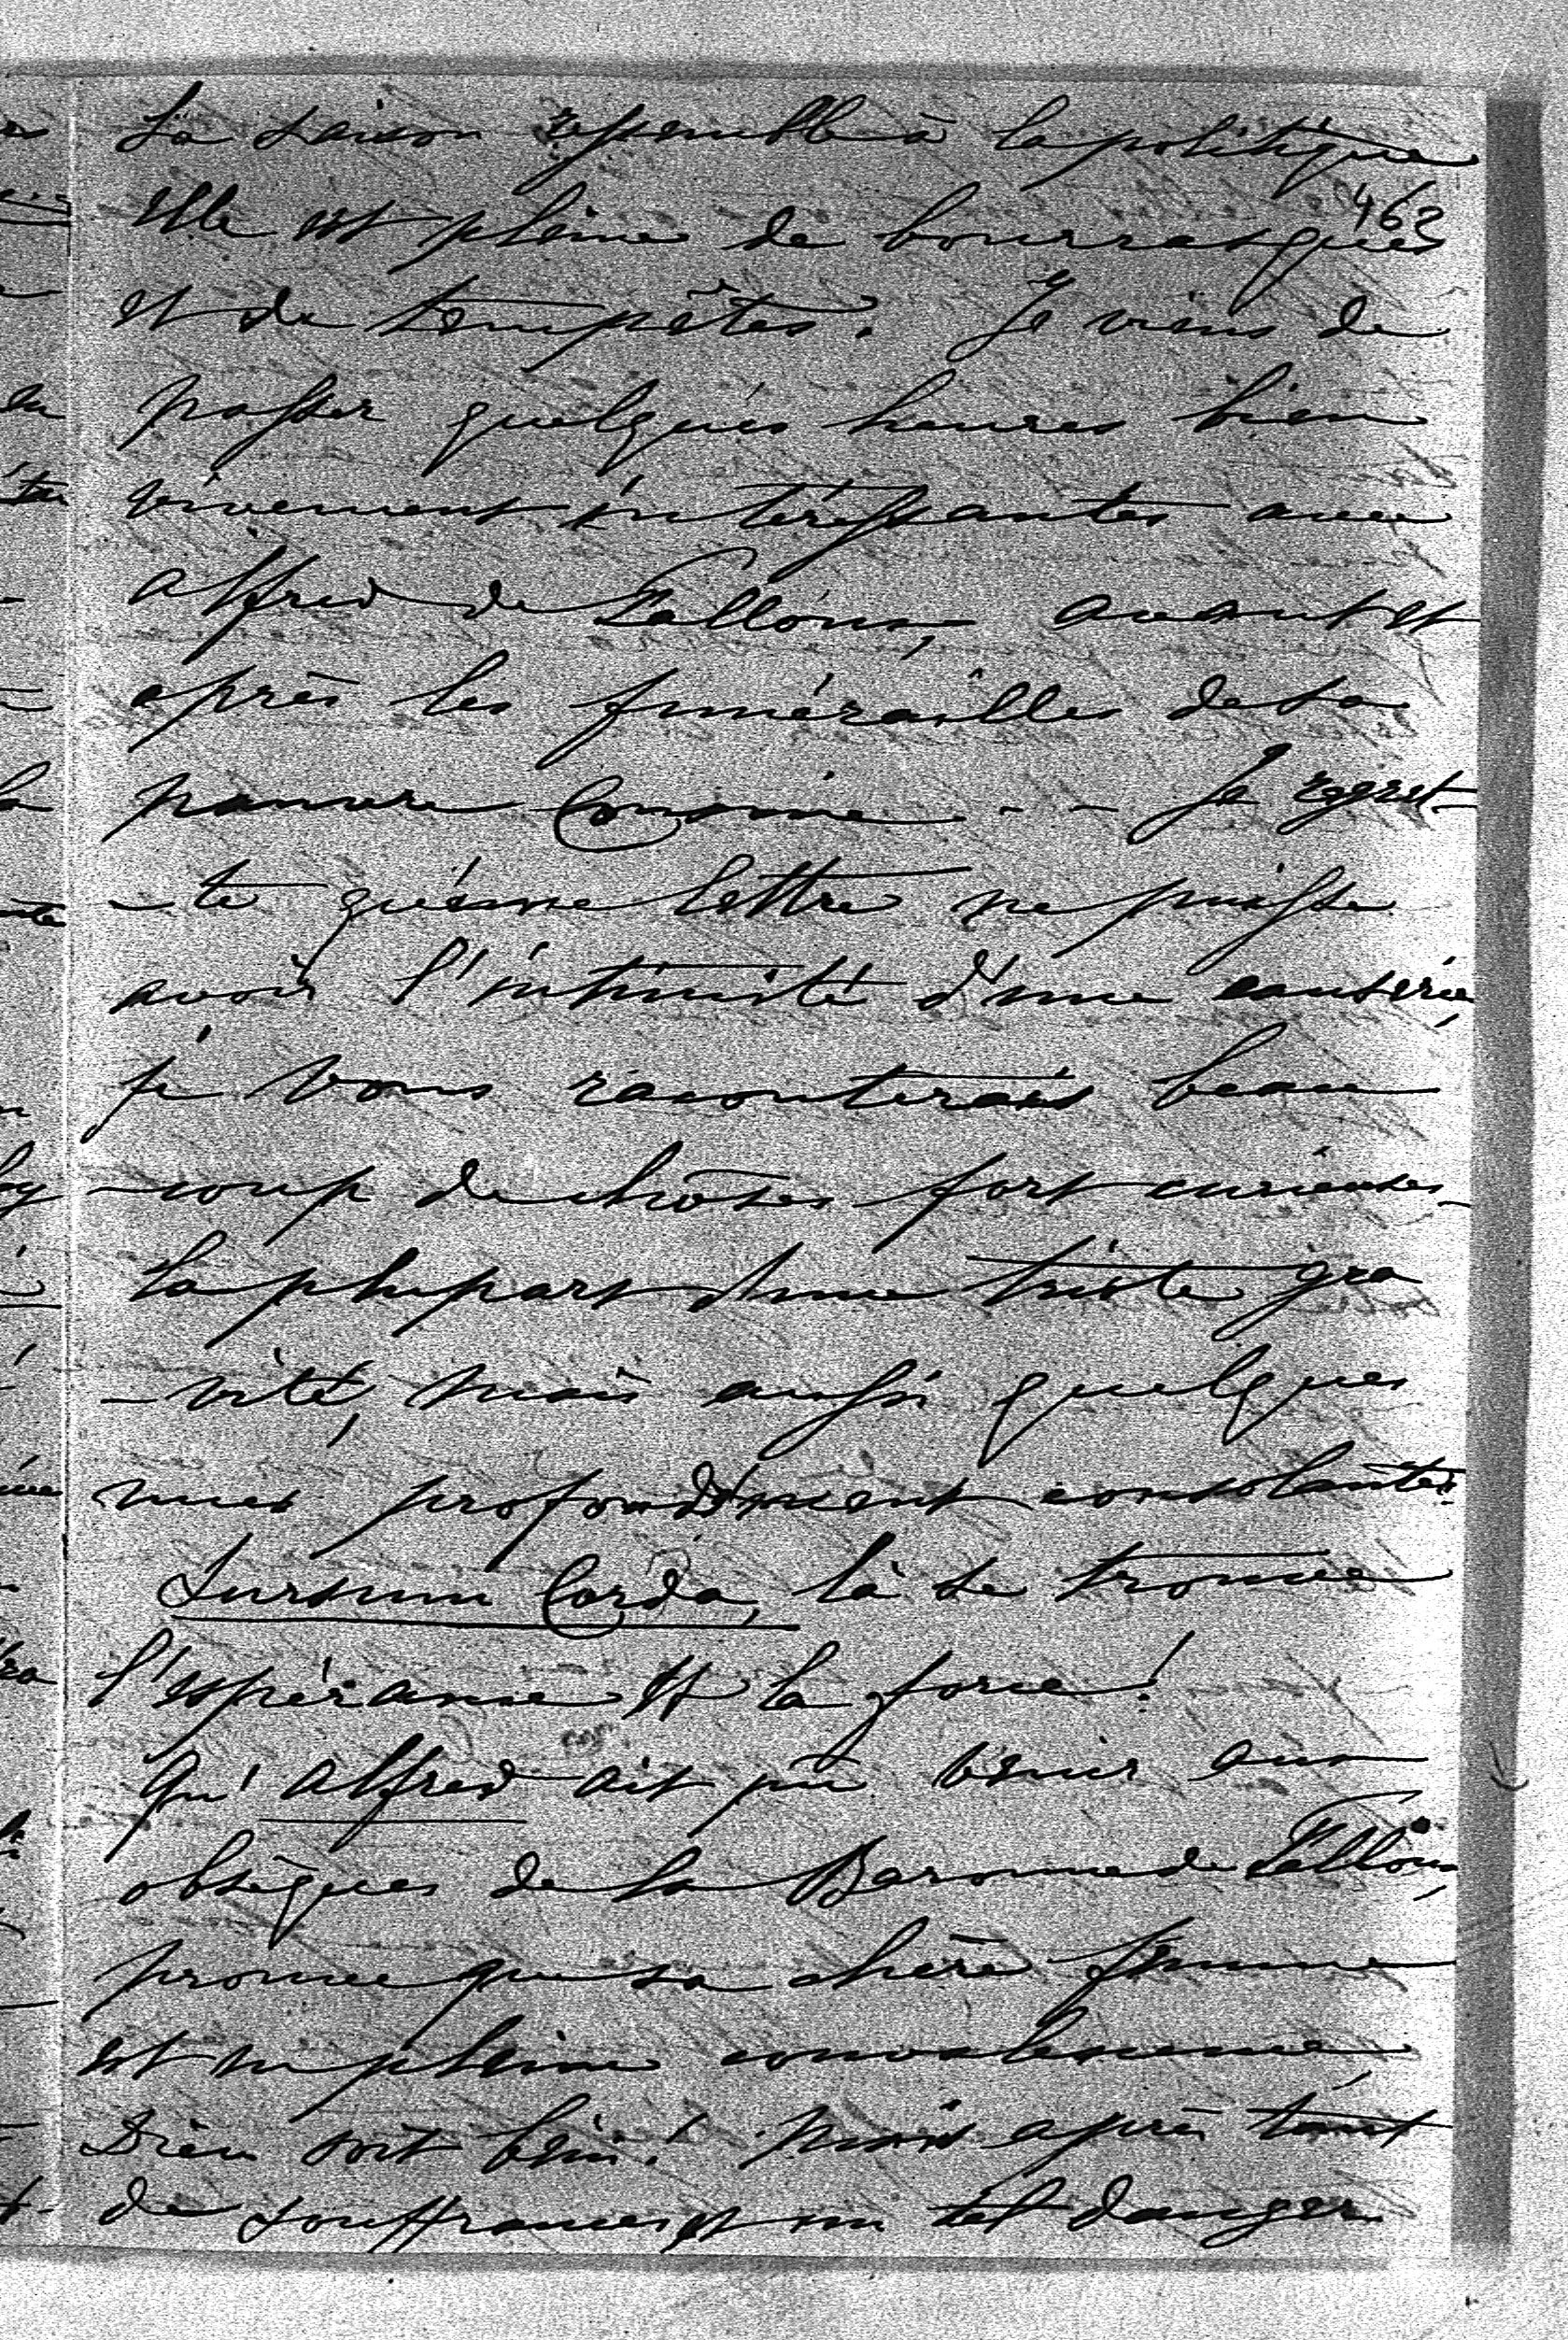 La saison ressemble à la politique
462
elle est pleine de bourrasques
et de tempêtes. Je viens de
passer quelques heures bien
vivement intéressantes avec
Alfred de Falloux, avant et
après les funérailles de sa
pauvre Cousine - - Je regret-
-te qu'une lettre ne puisse
avoir l'intimité d'une causerie,
je vous raconterais beau
-coup de choses fort curieuses -
la plupart d'une triste gra
-vité, mais aussi quelques
unes profondément consolantes.
Sursum Corda, là se trouve
l'espérance et la force!
Qu'Alfred ait pu venir aux
obsèques de la Baronne de Falloux,
prouve que sa chère femme
est en pleine convalescence
Dieu soit béni! Mais après tant
de souffrances et un tel danger